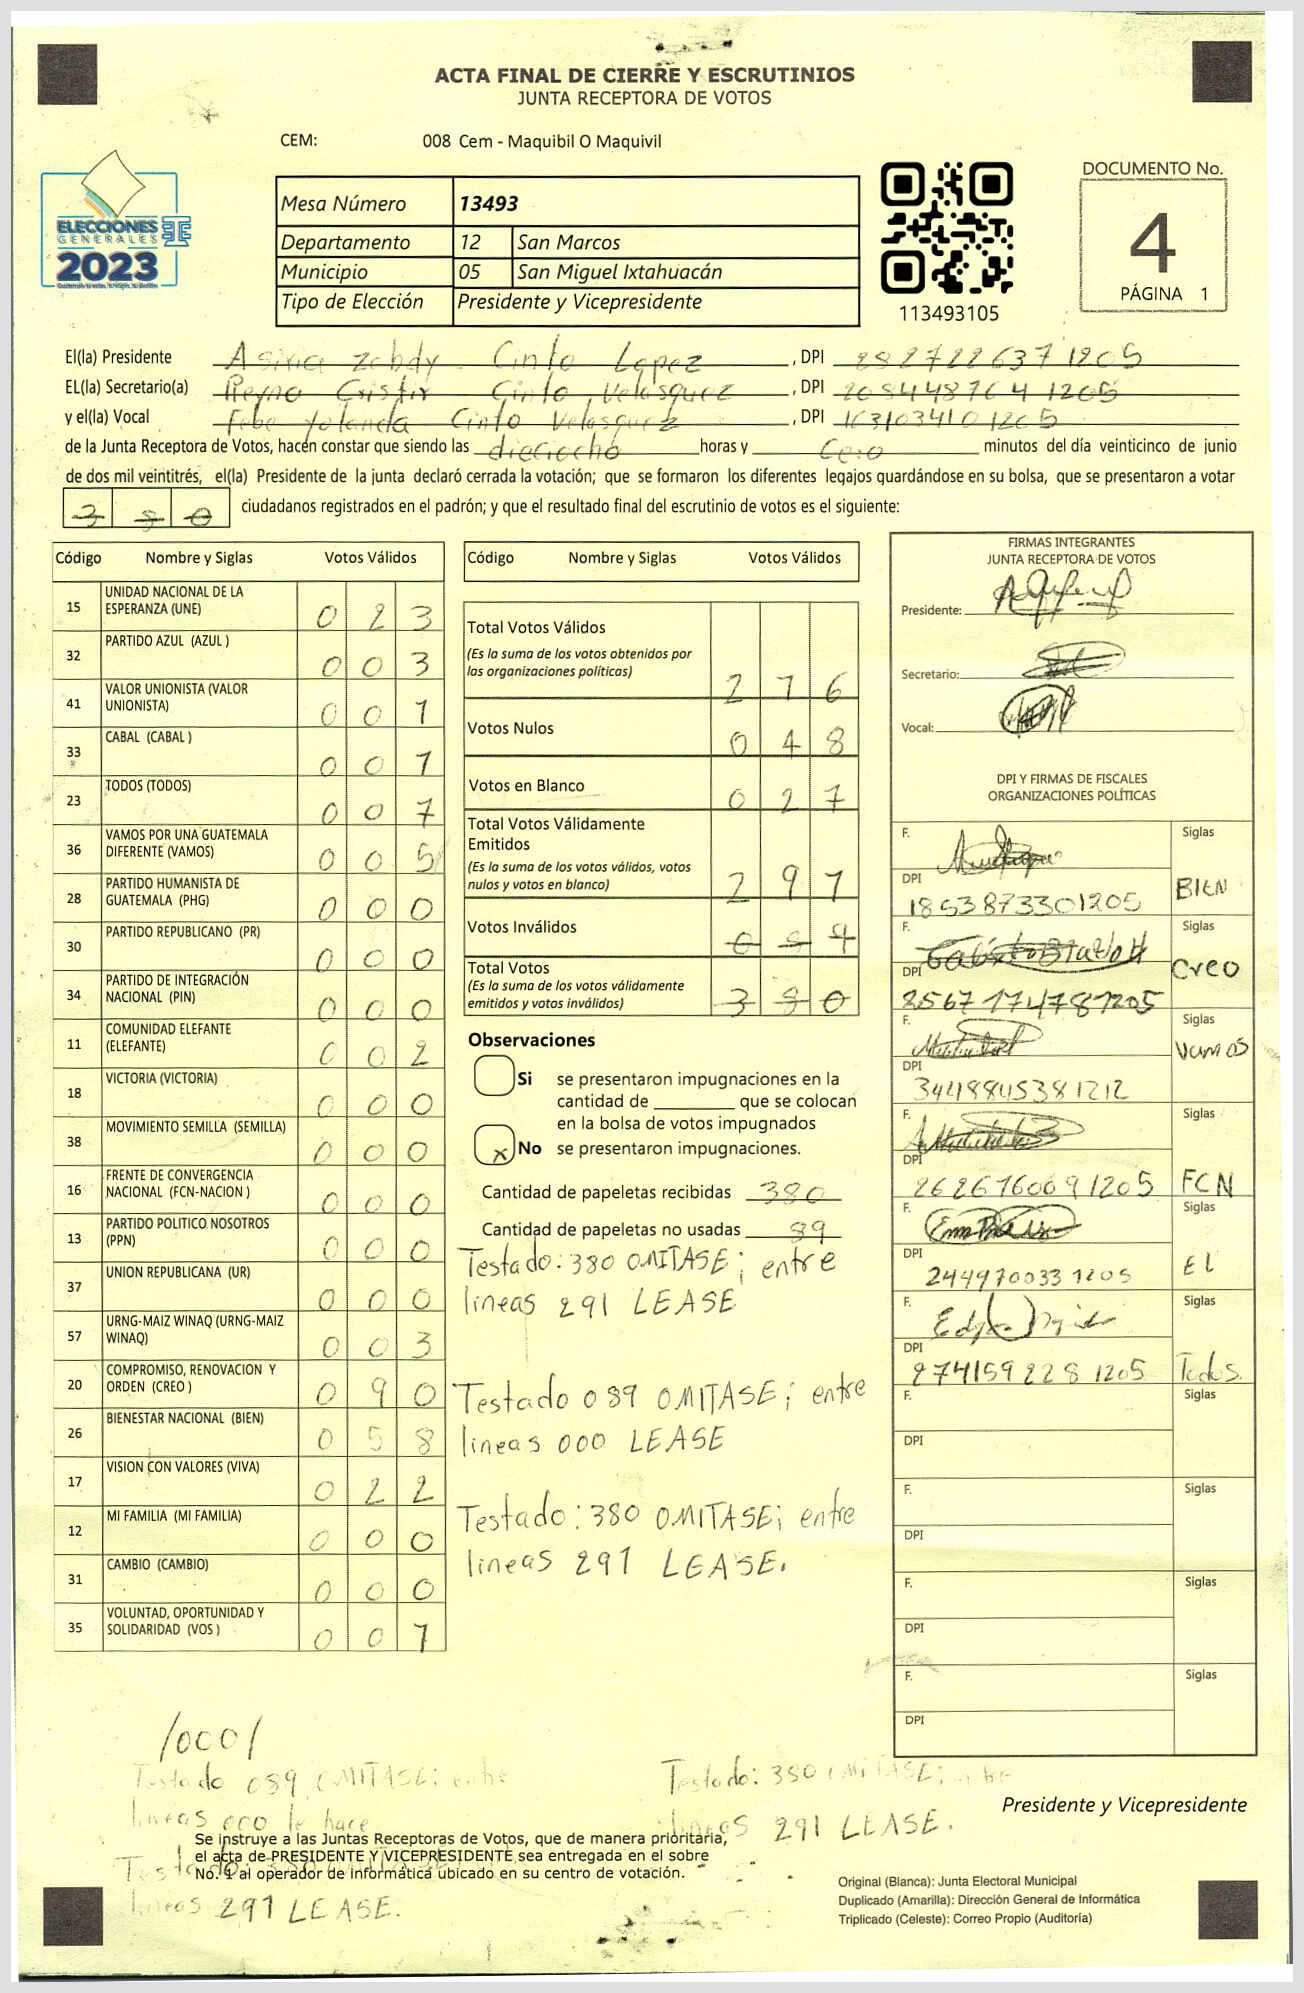 ACTA FINAL DE CIERRE Y ESCRUTINIOS
JUNTA RECEPTORA DE VOTOS
CEM: 008 Cem - Maquibil O Maquivil
ELECCIONES
GENERALES
2023
Mesa Número 13493
Departamento 12 San Marcos
Municipio 05 San Miguel Ixtahuacán
Tipo de Elección Presidente y Vicepresidente
113493105
DOCUMENTO No.
4
PÁGINA 1
El(la) Presidente Cinto Lopez , DPI 2827226371205
EL(la) Secretario(a) Cinto Velasquez , DPI 2084487641205
y el(la) Vocal Febe Yolanda Cinto Velasquez , DPI 1631034101205
de la Junta Receptora de Votos, hacen constar que siendo las dieciocho horas y Cero minutos del día veinticinco de junio
de dos mil veintitrés, el(la) Presidente de la junta declaró cerrada la votación; que se formaron los diferentes legajos guardándose en su bolsa, que se presentaron a votar
380 ciudadanos registrados en el padrón; y que el resultado final del escrutinio de votos es el siguiente:
Código Nombre y Siglas Votos Válidos
15 UNIDAD NACIONAL DE LA ESPERANZA (UNE) 0 2 3
32 PARTIDO AZUL (AZUL ) 0 0 3
41 VALOR UNIONISTA (VALOR UNIONISTA) 0 0 1
33 CABAL (CABAL ) 0 0 1
23 TODOS (TODOS) 0 0 7
36 VAMOS POR UNA GUATEMALA DIFERENTE (VAMOS) 0 0 5
28 PARTIDO HUMANISTA DE GUATEMALA (PHG) 0 0 0
30 PARTIDO REPUBLICANO (PR) 0 0 0
34 PARTIDO DE INTEGRACIÓN NACIONAL (PIN) 0 0 0
11 COMUNIDAD ELEFANTE (ELEFANTE) 0 0 2
18 VICTORIA (VICTORIA) 0 0 0
38 MOVIMIENTO SEMILLA (SEMILLA) 0 0 0
16 FRENTE DE CONVERGENCIA NACIONAL (FCN-NACION ) 0 0 0
13 PARTIDO POLITICO NOSOTROS (PPN) 0 0 0
37 UNION REPUBLICANA (UR) 0 0 0
57 URNG-MAIZ WINAQ (URNG-MAIZ WINAQ) 0 0 3
20 COMPROMISO, RENOVACION Y ORDEN (CREO ) 0 9 0
26 BIENESTAR NACIONAL (BIEN) 0 5 8
17 VISION CON VALORES (VIVA) 0 2 2
12 MI FAMILIA (MI FAMILIA) 0 0 0
31 CAMBIO (CAMBIO) 0 0 0
35 VOLUNTAD, OPORTUNIDAD Y SOLIDARIDAD (VOS ) 0 0 1
Código Nombre y Siglas Votos Válidos
Total Votos Válidos
(Es la suma de los votos obtenidos por
las organizaciones políticas) 2 1 6
Votos Nulos 0 4 8
Votos en Blanco 0 2 7
Total Votos Válidamente
Emitidos
(Es la suma de los votos válidos, votos
nulos y votos en blanco) 2 9 1
Votos Inválidos
Total Votos
(Es la suma de los votos válidamente
emitidos y votos inválidos) 3 8 0
Observaciones
Si se presentaron impugnaciones en la
cantidad de ________ que se colocan
en la bolsa de votos impugnados
x No se presentaron impugnaciones.
Cantidad de papeletas recibidas 380
Cantidad de papeletas no usadas 89
Testado: 380 OMITASE; entre
lineas 291 LEASE
Testado 089 OMITASE; entre
lineas 000 LEASE
Testado: 380 OMITASE; entre
lineas 291 LEASE.
FIRMAS INTEGRANTES
JUNTA RECEPTORA DE VOTOS
Presidente:
Secretario:
Vocal:
DPI Y FIRMAS DE FISCALES
ORGANIZACIONES POLÍTICAS
F. Siglas
DPI 1853873301205 BIEN
F. Siglas
DPI 2567174781205 Creo
F. Siglas
DPI 3448845381212 Vamos
F. Siglas
DPI 2626760091205 FCN
F. Siglas
DPI 2449700331205 EL
F. Siglas
DPI 2741592281205 Todos.
F. Siglas
DPI
F. Siglas
DPI
F. Siglas
DPI
F. Siglas
DPI
/000/
Testado 089 OMITASE; entre
lineas 000 le hace
Testado: 380 OMITASE; entre
lineas 291 LEASE.
Presidente y Vicepresidente
Se instruye a las Juntas Receptoras de Votos, que de manera prioritaria,
el acta de PRESIDENTE Y VICEPRESIDENTE sea entregada en el sobre
No. 1 al operador de informática ubicado en su centro de votación.
Testado: 380
lineas 291 LEASE.
Original (Blanca): Junta Electoral Municipal
Duplicado (Amarilla): Dirección General de Informática
Triplicado (Celeste): Correo Propio (Auditoría)